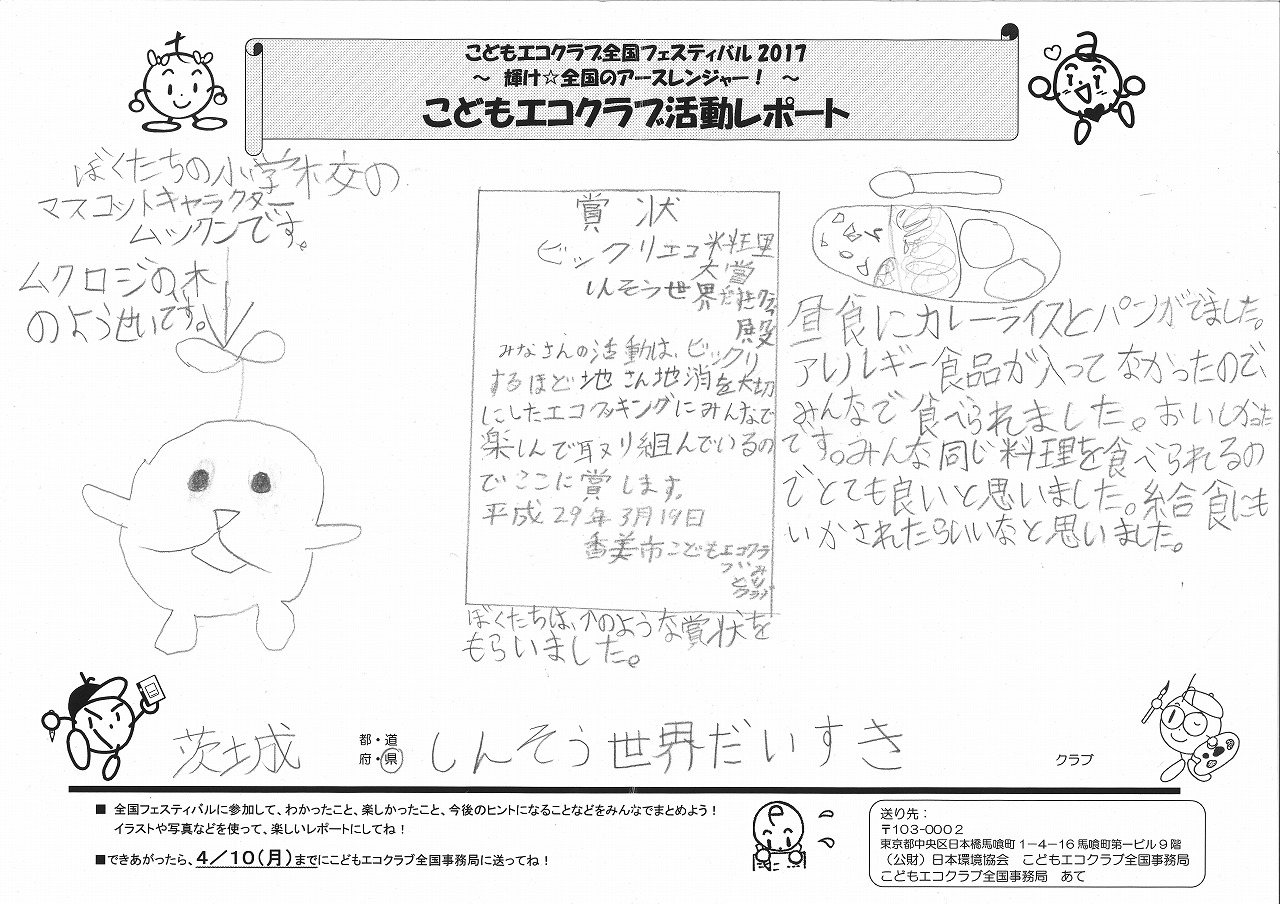 こどもエコクラブ全国フェスティバル2017
～ 輝け☆全国のアースレンジャー！ ～
こどもエコクラブ活動レポート
ぼくたちの小学校の
マスコットキャラクター
ムックンです。
ムクロジの木
のようせいです。
賞状
ビックリエコ料理
大賞
しんそう世界だいすきクラブ
殿
みなさんの活動は、ビックリ
するほど地さん地消を大切
にしたエコクッキングにみんなで
楽しんで取り組んでいるの
でここに賞します。
平成29年3月19日
香美市こどもエコクラ
ブ
みどりクラブ
ぼくたちは、↑のような賞状を
もらいました。
昼食にカレーライスとパンがでました。
アレルギー食品が入ってなかったので、
みんなで食べられました。おいしかった
です。みんな同じ料理を食べられるの
でとても良いと思いました。給食にも
いかされたらいいなと思いました。
茨城 都・道
府・県 しんそう世界だいすき クラブ
■ 全国フェスティバルに参加して、わかったこと、楽しかったこと、今後のヒントになることなどをみんなでまとめよう！
イラストや写真などを使って、楽しいレポートにしてね！
■できあがったら、4／10（月）までにこどもエコクラブ全国事務局に送ってね！
送り先：
〒103-0002
東京都中央区日本橋馬喰町1－4－16馬喰町第一ビル9階
（公財）日本環境協会 こどもエコクラブ全国事務局
こどもエコクラブ全国事務局 あて